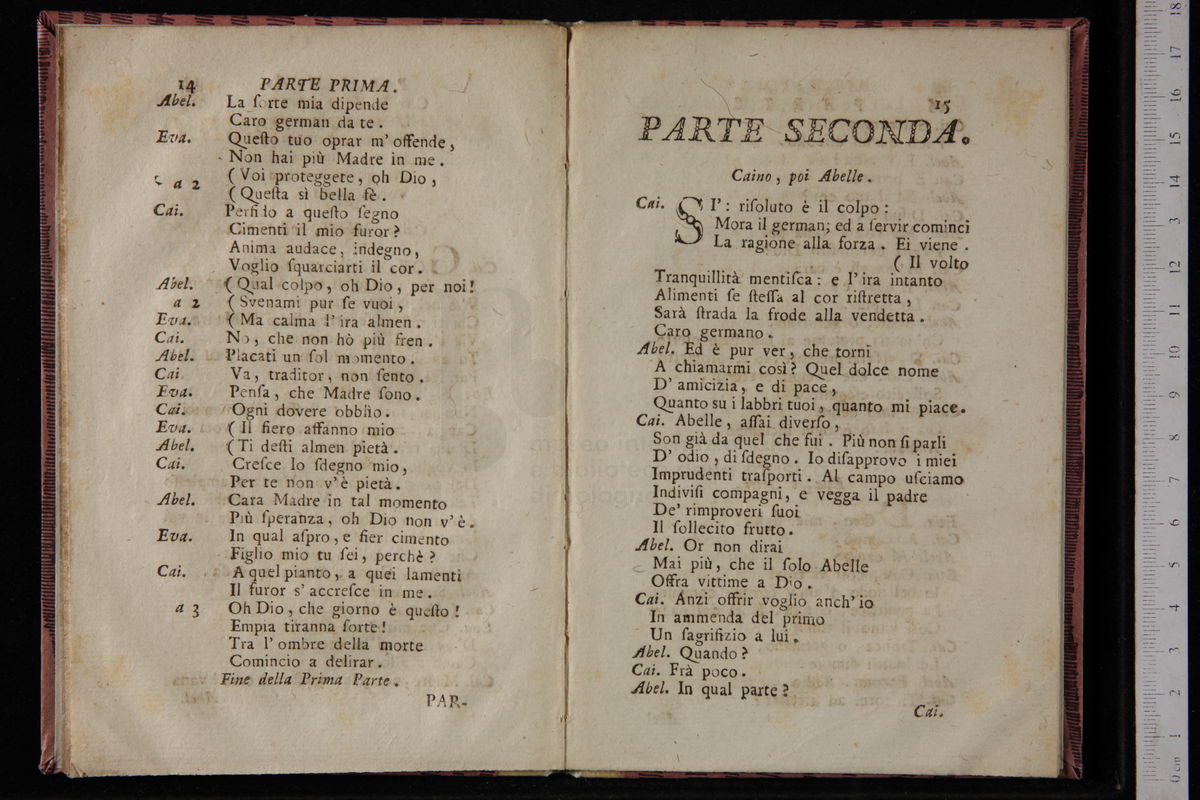 14 PARTE PRIMA.
Abel. La ſorte mia dipende
Caro german da te.
Eva. Queſto tuo oprar m' offende,
Non hai più Madre in me.
a 2 (Voi proteggete, oh Dio,
(Queſta sì bella fè.
Cai. Perfido a queſto ſegno
Cimenti il mio furor?
Anima audace, indegno,
Voglio ſquarciarti il cor.
Abel. (Qual colpo, oh Dio, per noi!
a 2 (Svenami pur ſe vuoi,
Eva. (Ma calma l' ira almen.
Cai. No, che non hò più fren.
Abel. Placati un ſol momento.
Cai Va, traditor, non ſento.
Eva. Penſa, che Madre ſono.
Cai. Ogni dovere obblio.
Eva. (Il fiero affanno mio
Abel. (Ti deſti almen pietà.
Cai. Creſce lo ſdegno mio,
Per te non v' è pietà.
Abel. Cara Madre in tal momento
Più ſperanza, oh Dio non v' è.
Eva. In qual aſpro, e fier cimento
Figlio mio tu ſei, perchè?
Cai. A quel pianto, a quei lamenti
Il furor s' accreſce in me.
a 3 Oh Dio, che giorno è queſto!
Empia tiranna ſorte!
Tra l' ombre della morte
Comincio a delirar.
Fine della Prima Parte.
PAR-
15
PARTE SECONDA.
Caino, poi Abelle.
Cai. SI': riſoluto è il colpo:
Mora il german; ed a ſervir cominci
La ragione alla forza. Ei viene.
( Il volto
Tranquillità mentiſca: e l' ira intanto
Alimenti ſe ſteſſa al cor riſtretta,
Sarà ſtrada la frode alla vendetta.
Caro germano.
Abel. Ed è pur ver, che torni
A chiamarmi così? Quel dolce nome
D' amicizia, e di pace,
Quanto su i labbri tuoi, quanto mi piace.
Cai. Abelle, aſſai diverſo,
Son già da quel che fui. Più non ſi parli
D' odio, di ſdegno. Io diſapprovo i miei
Imprudenti traſporti. Al campo uſciamo
Indiviſi compagni, e vegga il padre
De' rimproveri ſuoi
Il ſollecito frutto.
Abel. Or non dirai
Mai più, che il ſolo Abelle
Offra vittime a Dio.
Cai. Anzi offrir voglio anch' io
In ammenda del primo
Un ſagrifizio a lui.
Abel. Quando?
Cai. Frà poco.
Abel. In qual parte?
Cai.